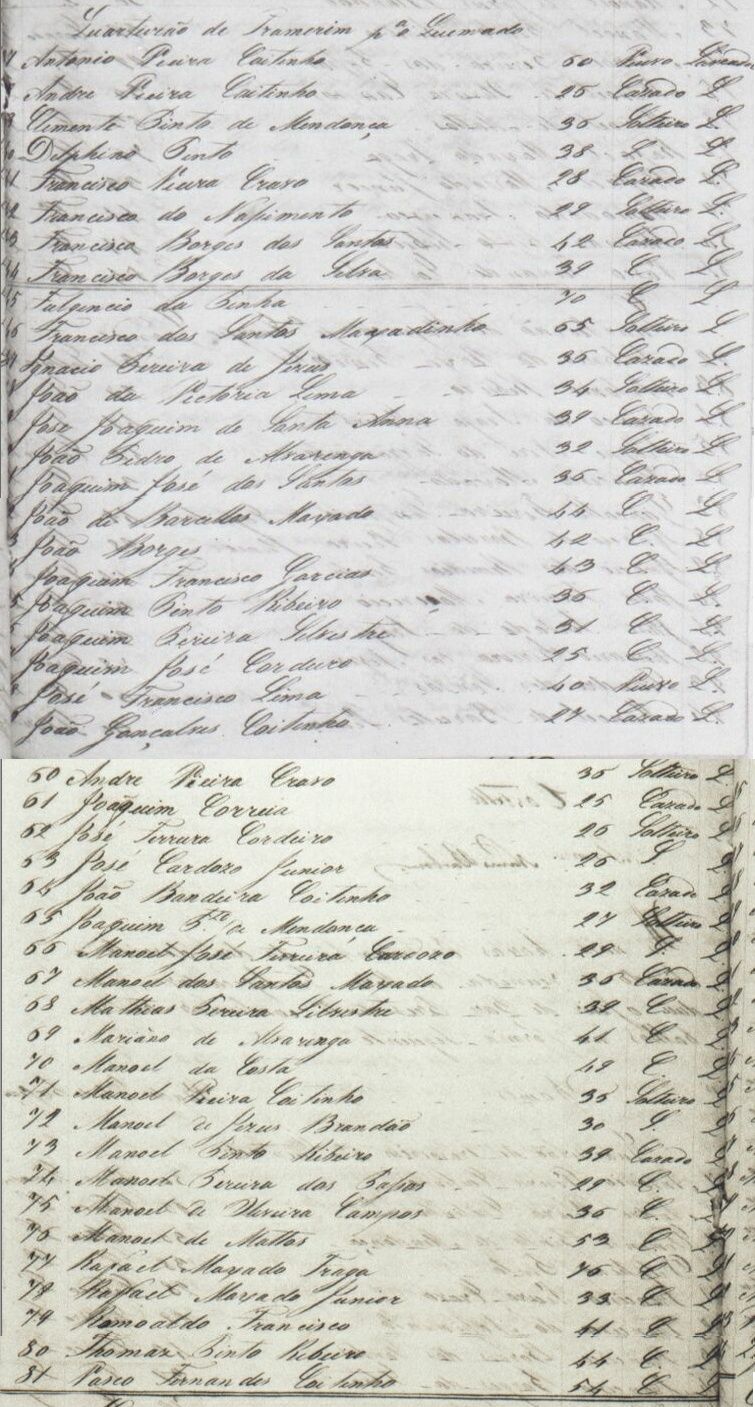 Quarteirão de Tramerim pª o Queimado
Antonio Vieira Coitinho 60 Viuvo Lavrador
Andre Vieira Coitinho 26 Cazado L
Clemente Pinto de Mendonça 36 Solteiro L.
Delphino Pinto 38 S. L
Francisco Vieira Cravo 28 Cazado L.
Francisco do Nassimento 29 Solteiro L.
Francisco Borges dos Santos 42 Cazado L
Francisco Borges da Silva 39 C L
Fulgencio da Penha 70 C L
Francisco dos Santos Maxadinho 65 Solteiro L
Ignacio Pereira de Jezus 36 Cazado L.
João da Victoria Lima 34 Solteiro L
Jose Joaquim de Santa Anna 39 Cazado L
João Pedro de Alvarenga 32 Solteiro L.
Joaquim José dos Santos 36 Cazado L
João de Barcellos Maxado 44 C. L
João Borges 42 C. L
Joaquim Francisco Garcias 43 C. L
Joaquim Pinto Ribeiro 36 C. L
Joaquim Pereira Silvestre 31 C. L
Joaquim José Cordeiro 25 C. L
José Francisco Lima 40 Viuvo L
João Gonçalves Coitinho 27 Cazado L
60 Andre Vieira Cravo 36 Solteiro L.
61 Joaquim Correia 25 Cazado L
62 José Ferreira Cordeiro 26 Solteiro L
63 José Cardozo Junior 26 S L
64 João Bandeira Coitinho 32 Cazado L
65 Joaquim P.to de Mendonça 27 Solteiro L
66 Manoel José Ferreira Cardozo 29 S. L
67 Manoel dos Santos Maxado 36 Cazado L
68 Mathias Pereira Silvestre 39 C L
69 Mariano de Alvarenga 41 C L
70 Manoel da Costa 49 C. L
71 Manoel Vieira Coitinho 35 Solteiro L
72 Manoel de Jezus Brandão 30 S L
73 Manoel Pinto Ribeiro 39 Cazado L
74 Manoel Pereira dos Passos 29 C. L
75 Manoel de Oliveira Campos 36 C. L
76 Manoel de Mattos 53 C. L
77 Rafael Maxado Fraga 76 C. L
78 Rafael Maxado Junior 33 C. L
79 Romoaldo Francisco 41 C L
80 Thomaz Pinto Ribeiro 44 C. L
81 Vasco Fernandes Coitinho 54 C. L